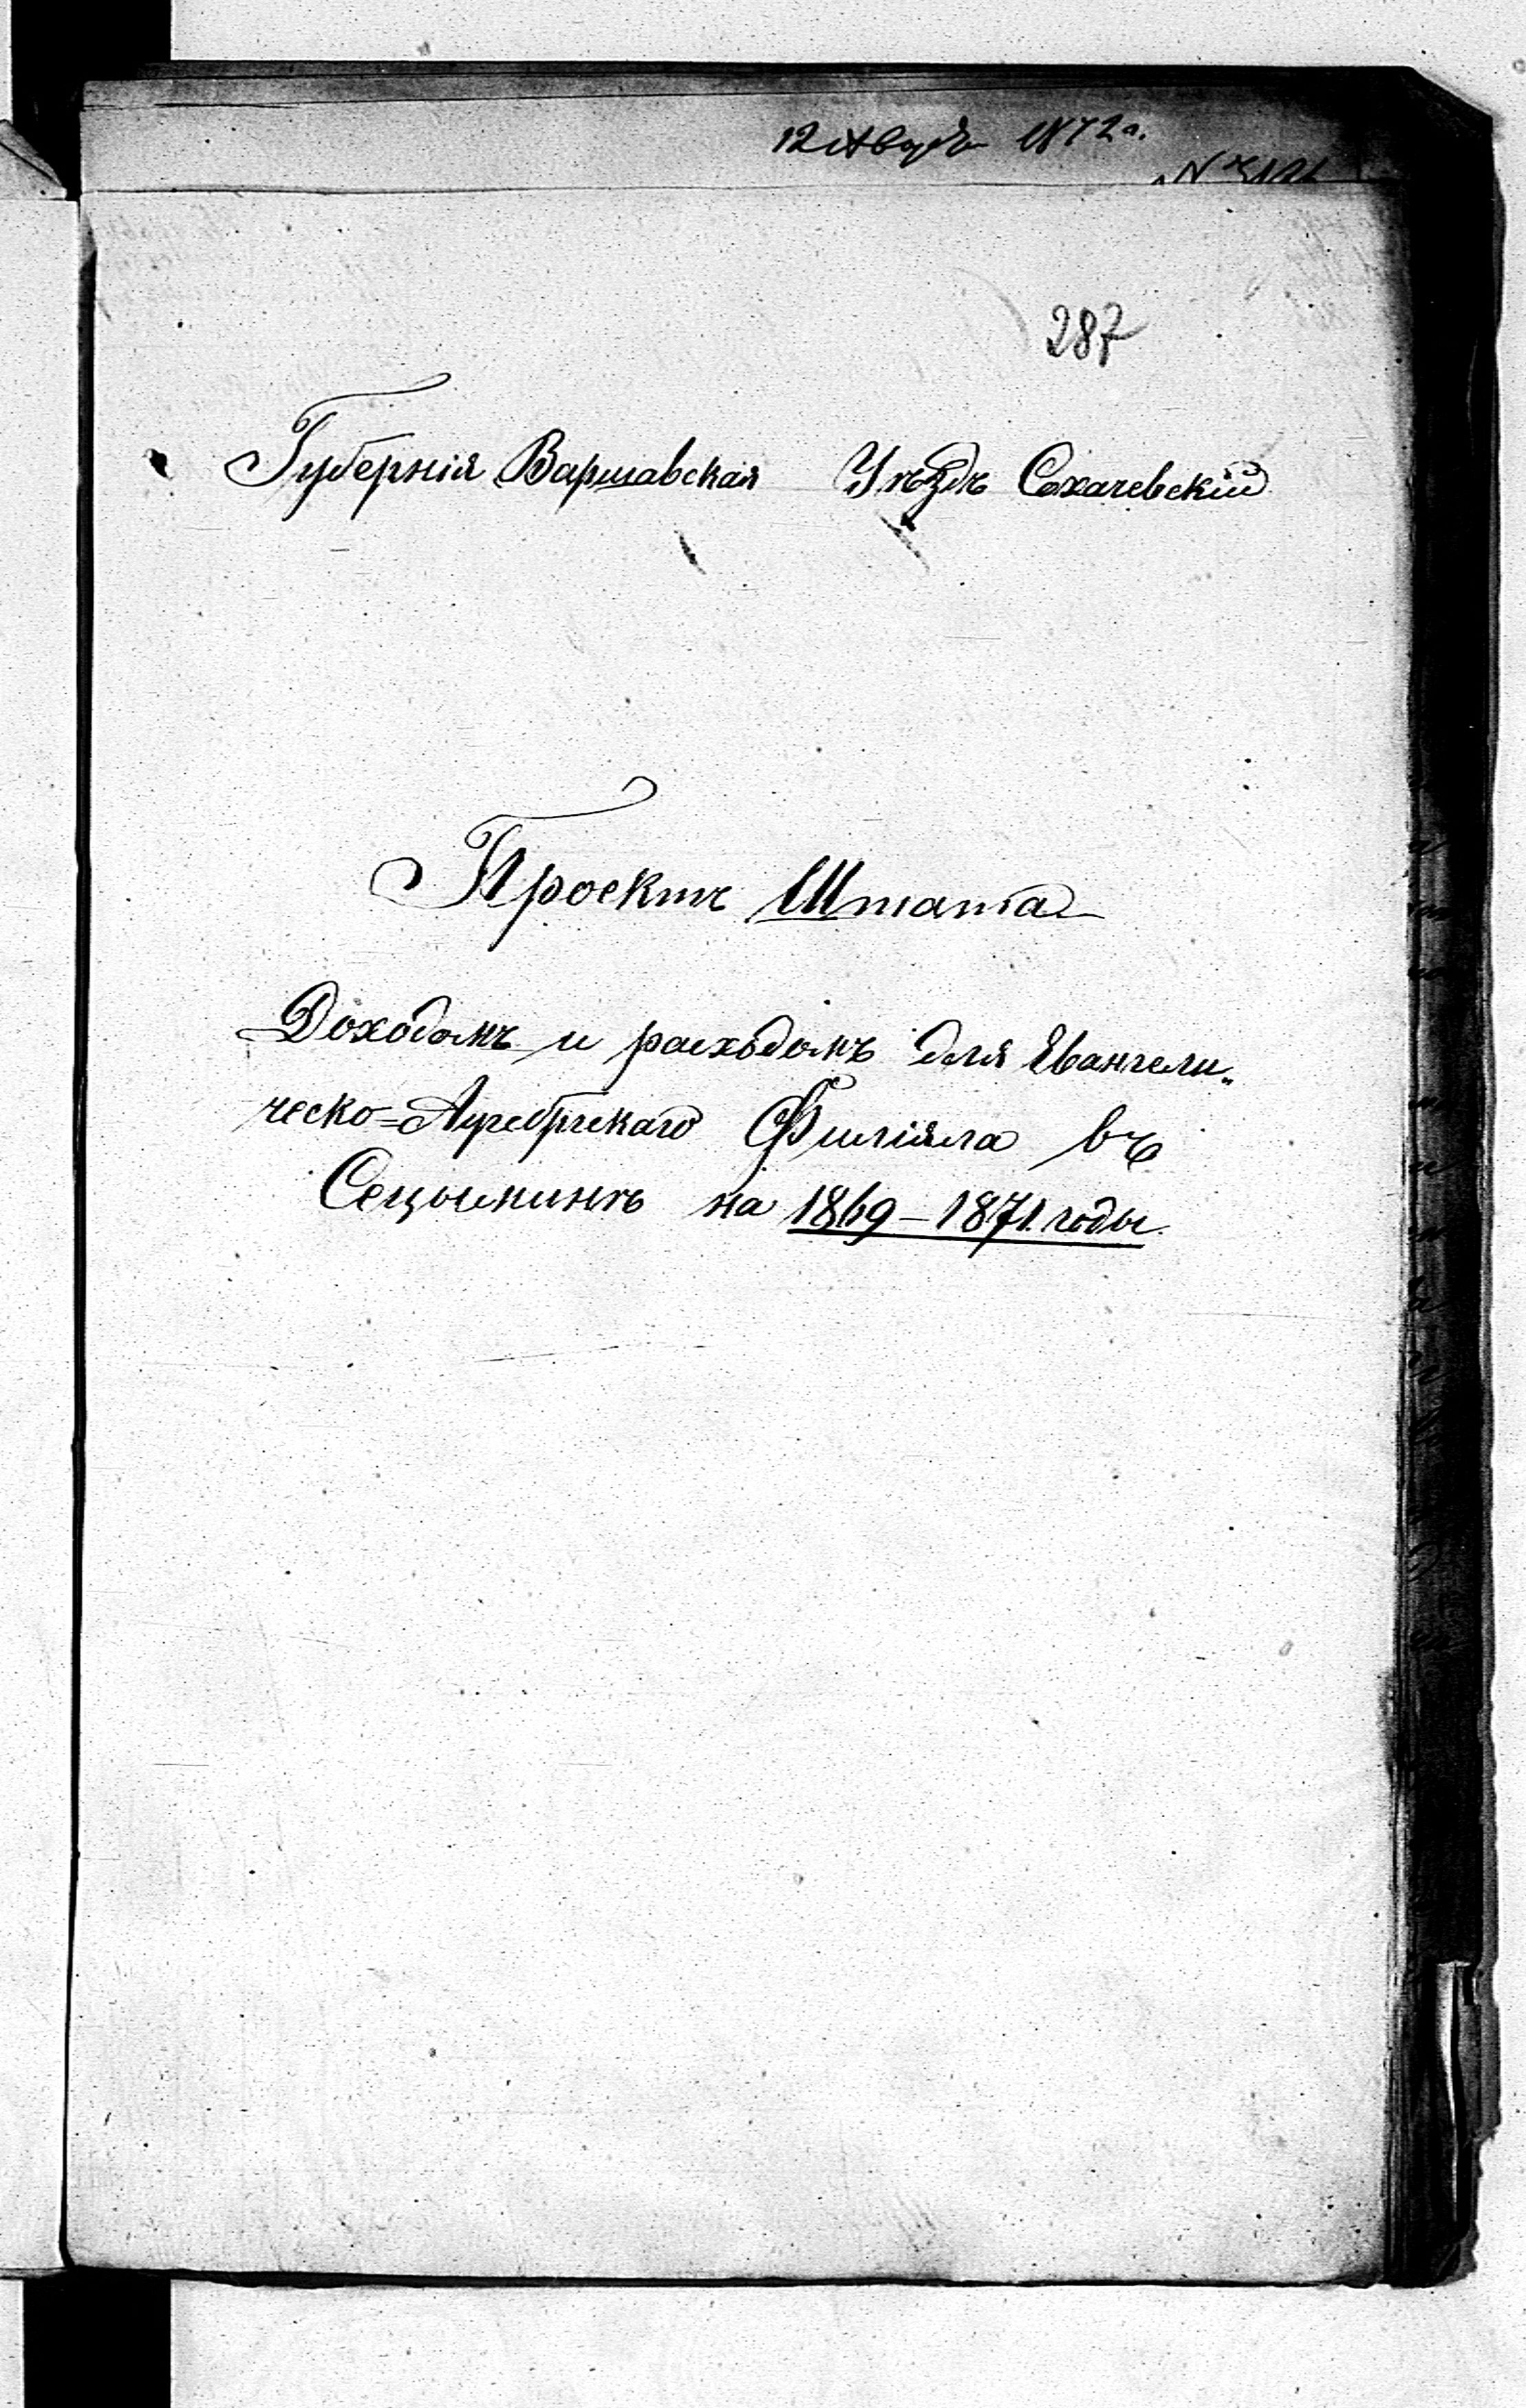 12 Августа 1872 г.
287
Губернія Варшавская Уѣздъ Сохачевскій
Проектъ Штата
Доходомъ и расходомъ для Евангели„
ческо=Аугсбргскаго Филіяла въ
Сецыминѣ на 1869–1871. годы.